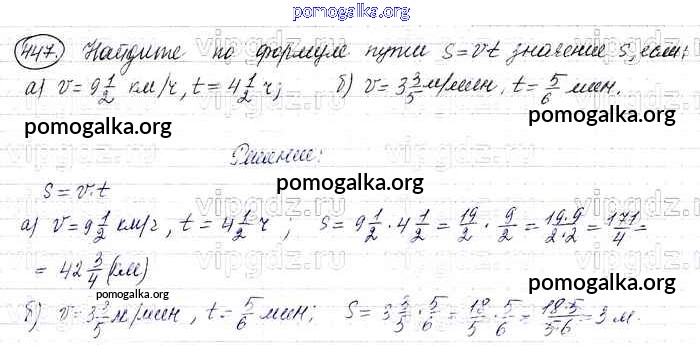 pomogalka.org
447. Найдите по формуле пути s=vt значение s, если:
а) v = 9 1/2 км/ч, t = 4 1/2 ч; б) v = 3 3/5 м/мин, t = 5/6 мин.
pomogalka.org pomogalka.org
Решение:
pomogalka.org
s = v·t
а) v = 9 1/2 км/ч, t = 4 1/2 ч; s = 9 1/2 · 4 1/2 = 19/2 · 9/2 = 19·9/2·2 = 171/4 =
= 42 3/4 (км)
pomogalka.org pomogalka.org
pomogalka.org
б) v = 3 3/5 м/мин, t = 5/6 мин; s = 3 3/5 · 5/6 = 18/5 · 5/6 = 18·5/5·6 = 3 м.
pomogalka.org